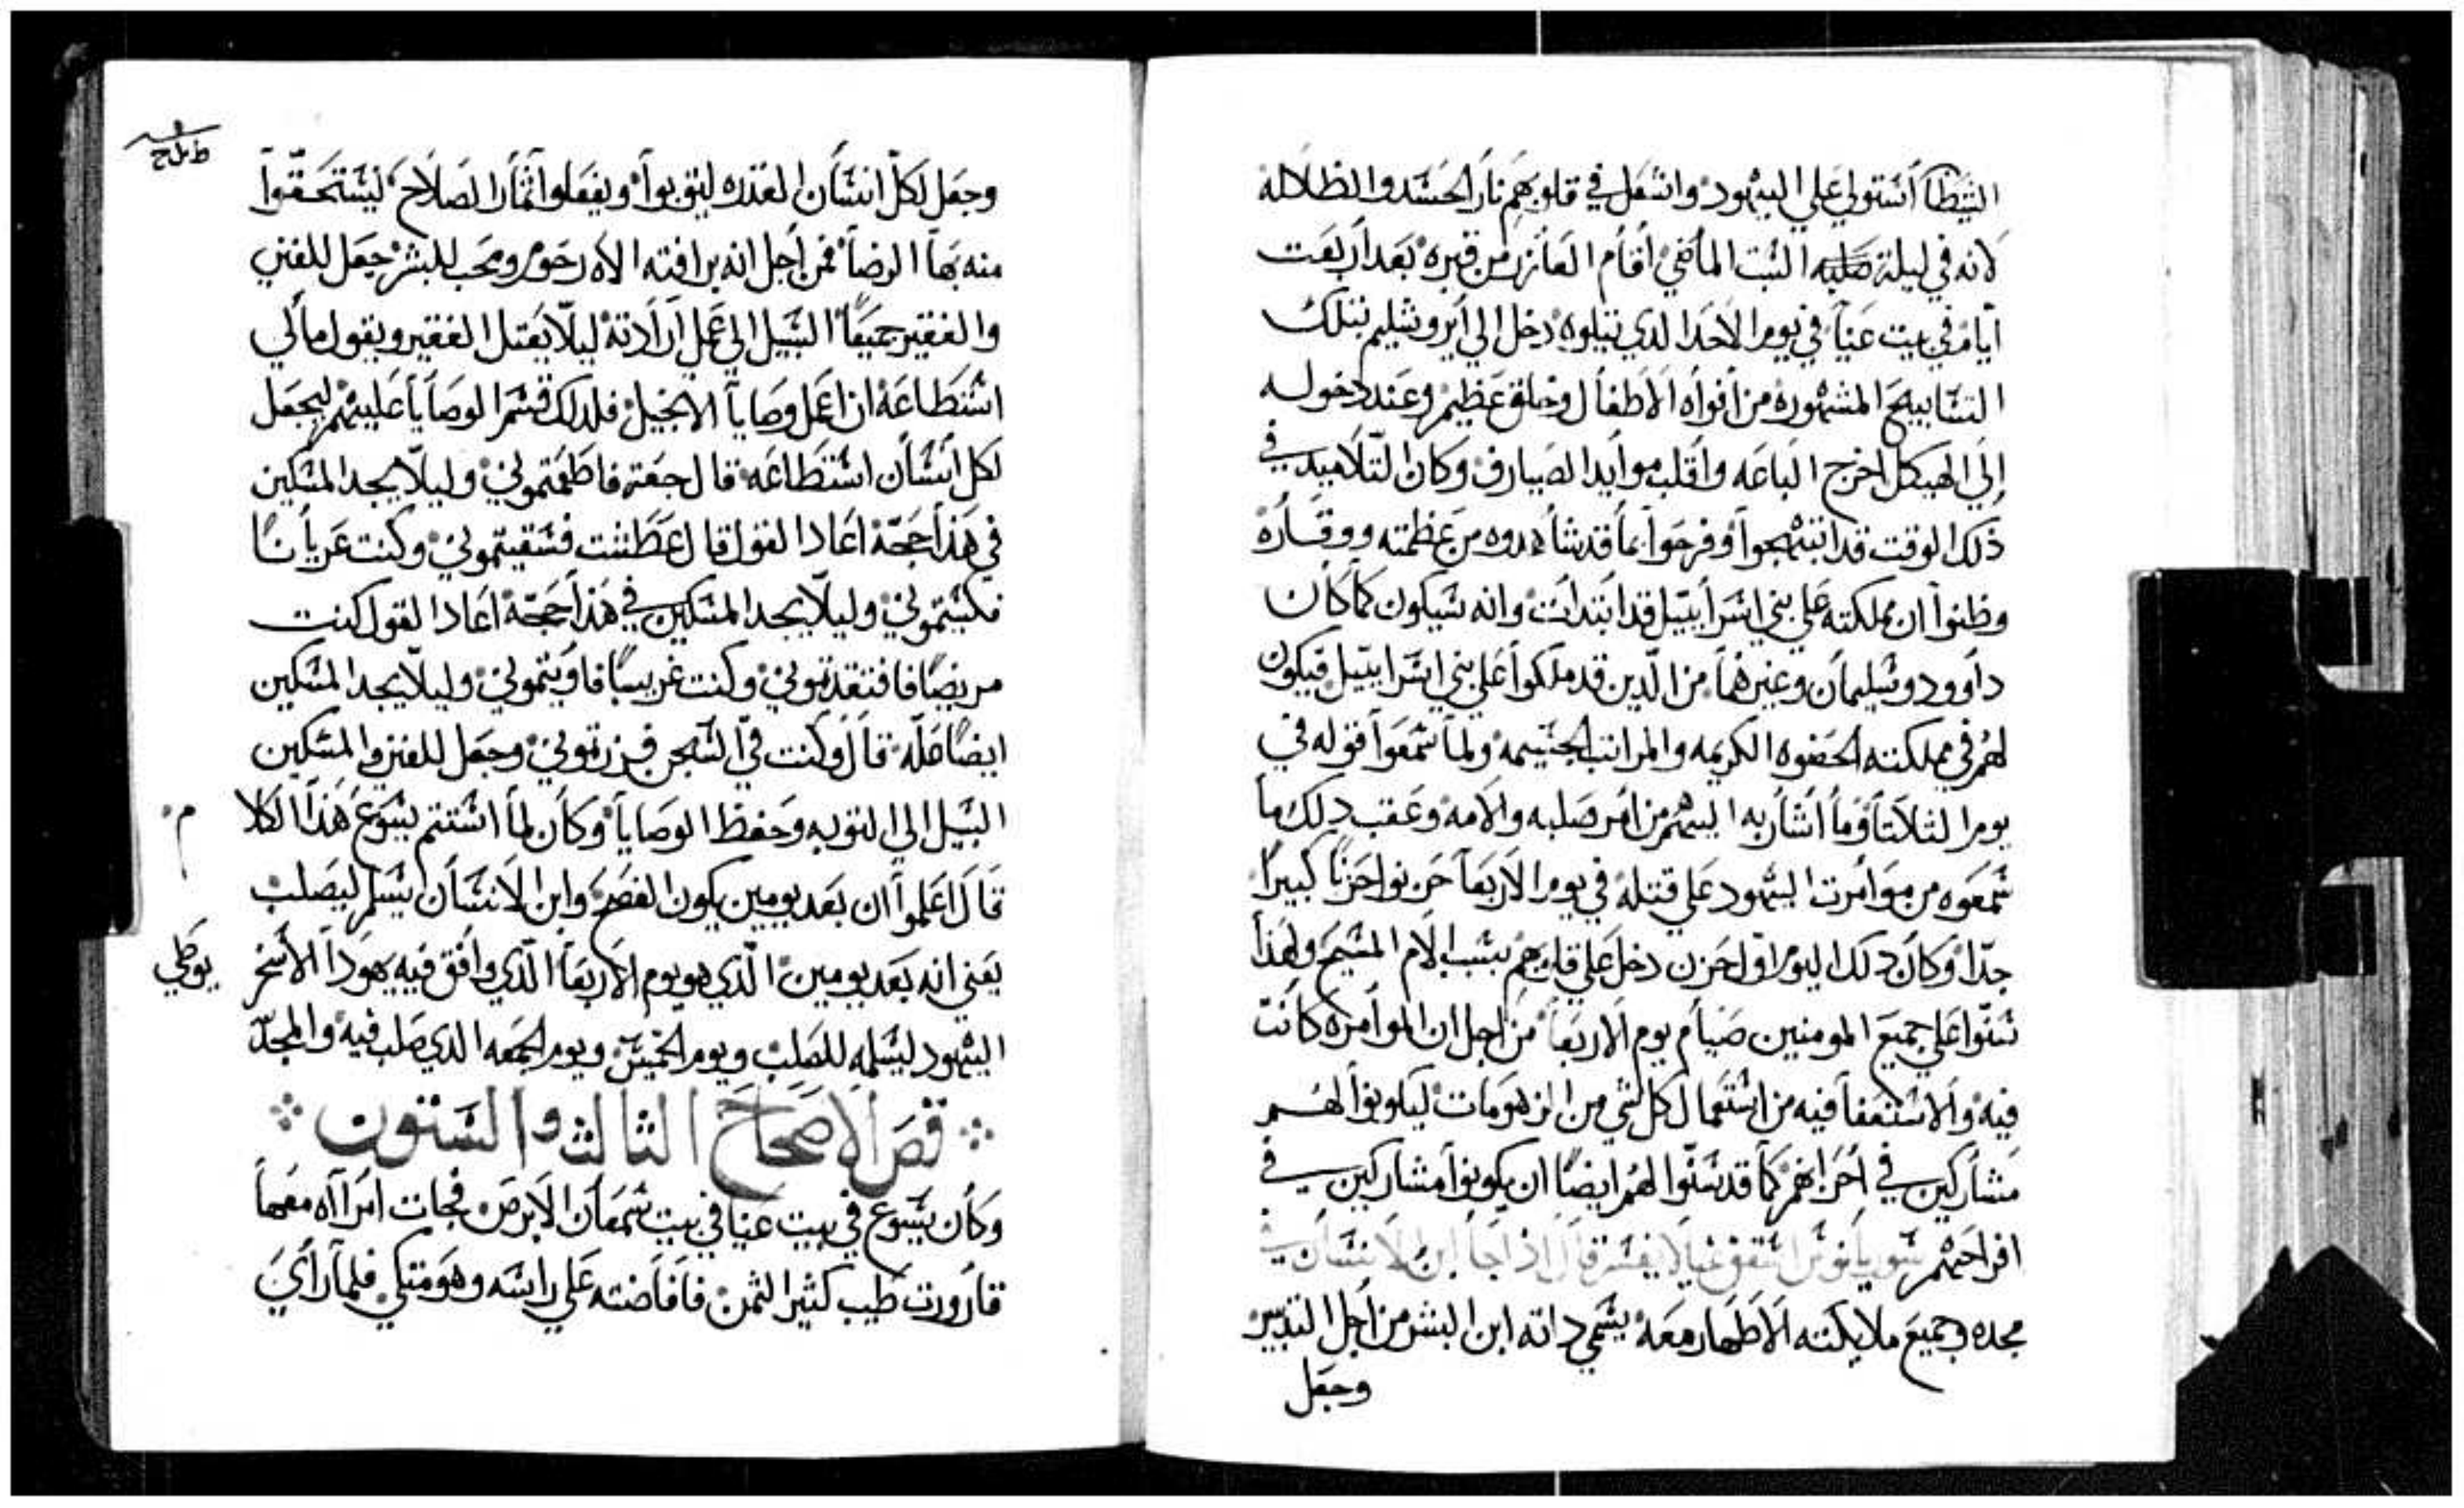 الشيطا أستولي علي اليهود واشعل في قلوبهم نار الحسد والظلاله
لانه في ليلة صلبه السبت الماضي أقام العازر من قبره بعد أربعت
أيام في بيت عنيا في يوم الاحد الدي يتلوه دخل الي أيروشليم بتلك
التسابيح المشهوره من أفواه الاطفال وخلق عظيم وعند دخوله
إلي الهيكل اخرج الباعه وأقلب موايد الصيارف وكان التلاميد في
ذلك الوقت قد ابتهجوا وفرحوا بما قد شاهدوه من عظمته ووقاره
وظنوا ان مملكته علي بني اسرأييل قد ابتدات وانه سيكون كما كان
دأوود وسليمان وغيرهما من الدين قد ملكوا علي بني اسراييل فيكون
لهم في مملكته الحضوه الكريمه والمراتب الجسيمه ولما سمعوا قوله في
يوم الثلاتا وما أشار به اليهم من أمر صلبه والامه وعقب دلك ما
سمعوه من موامرت اليهود علي قتله في يوم الاربعا حزنوا حزنا كبيرا
جدا وكان دلك اليوم اول حزن دخل علي قلوبهم بسبب الام المسيح ولهدا
سنوا علي جميع المومنين صيام يوم الاربعا من اجل ان الموامره كانت
فيه والاستعفا فيه من استعمال كل شي من الزهومات ليكونوا لهم
مشاركين في أحزانهم كما قد سنوا لهم ايضا ان يكونوا مشاركين في
افراحهم سوريانوس اسقف غبالا يفسر قال اذا جا ابن الانسان في
مجده وجميع ملايكته الاطهار معه يسمي داته ابن البشر من أجل التدبير
وجعل
وجعل لكل انسان القدره ليتوبوا ويفعلوا أثمار الصلاح ليستحقوا
منه بها الرضا فمن أجل انه برافته الاه رحوم ومحب للبشر جعل للغني
والفقير جميعا السبيل الي عمل أرادته ليلا يعتل الفقير ويقول مالي
استطاعه ان اعمل وصايا الانجيل فلدلك قسم الوصايا عليهم ليجعل
لكل انسان استطاعه قال جعت فاطعمتموني وليلا يجد المسكين
في هذا حجة اعاد القول قال عطشت فسقيتموني وكنت عريانا
فكسيتموني وليلا يجد المسكين في هذا حجة اعاد القول كنت
مريضا فافتقدتموني وكنت غريبا فاويتموني وليلا يجد المسكين
ايضا عله قال وكنت في السجن فزرتموني وجعل للغني والمسكين
السبيل الي التوبه وحفظ الوصايا وكان لما استتم يسوع هذا الكلا م
قال اعلموا ان بعد يومين يكون الفصح وابن الانسان يسلم ليصلب
يعني انه بعد يومين الذي هو يوم الاربعا الذي وافق فيه يهودا الاسخر يوطي
اليهود ليسلمه للصلب ويوم الخميس ويوم الجمعه الدي صلب فيه والمجد
قص الاصحاح الثالث والستون
وكان يسوع في بيت عنيا في بيت سمعان الابرص فجات امرااه معها
قارورت طيب كثير الثمن فافاضته علي راسه وهو متكي فلما رأي